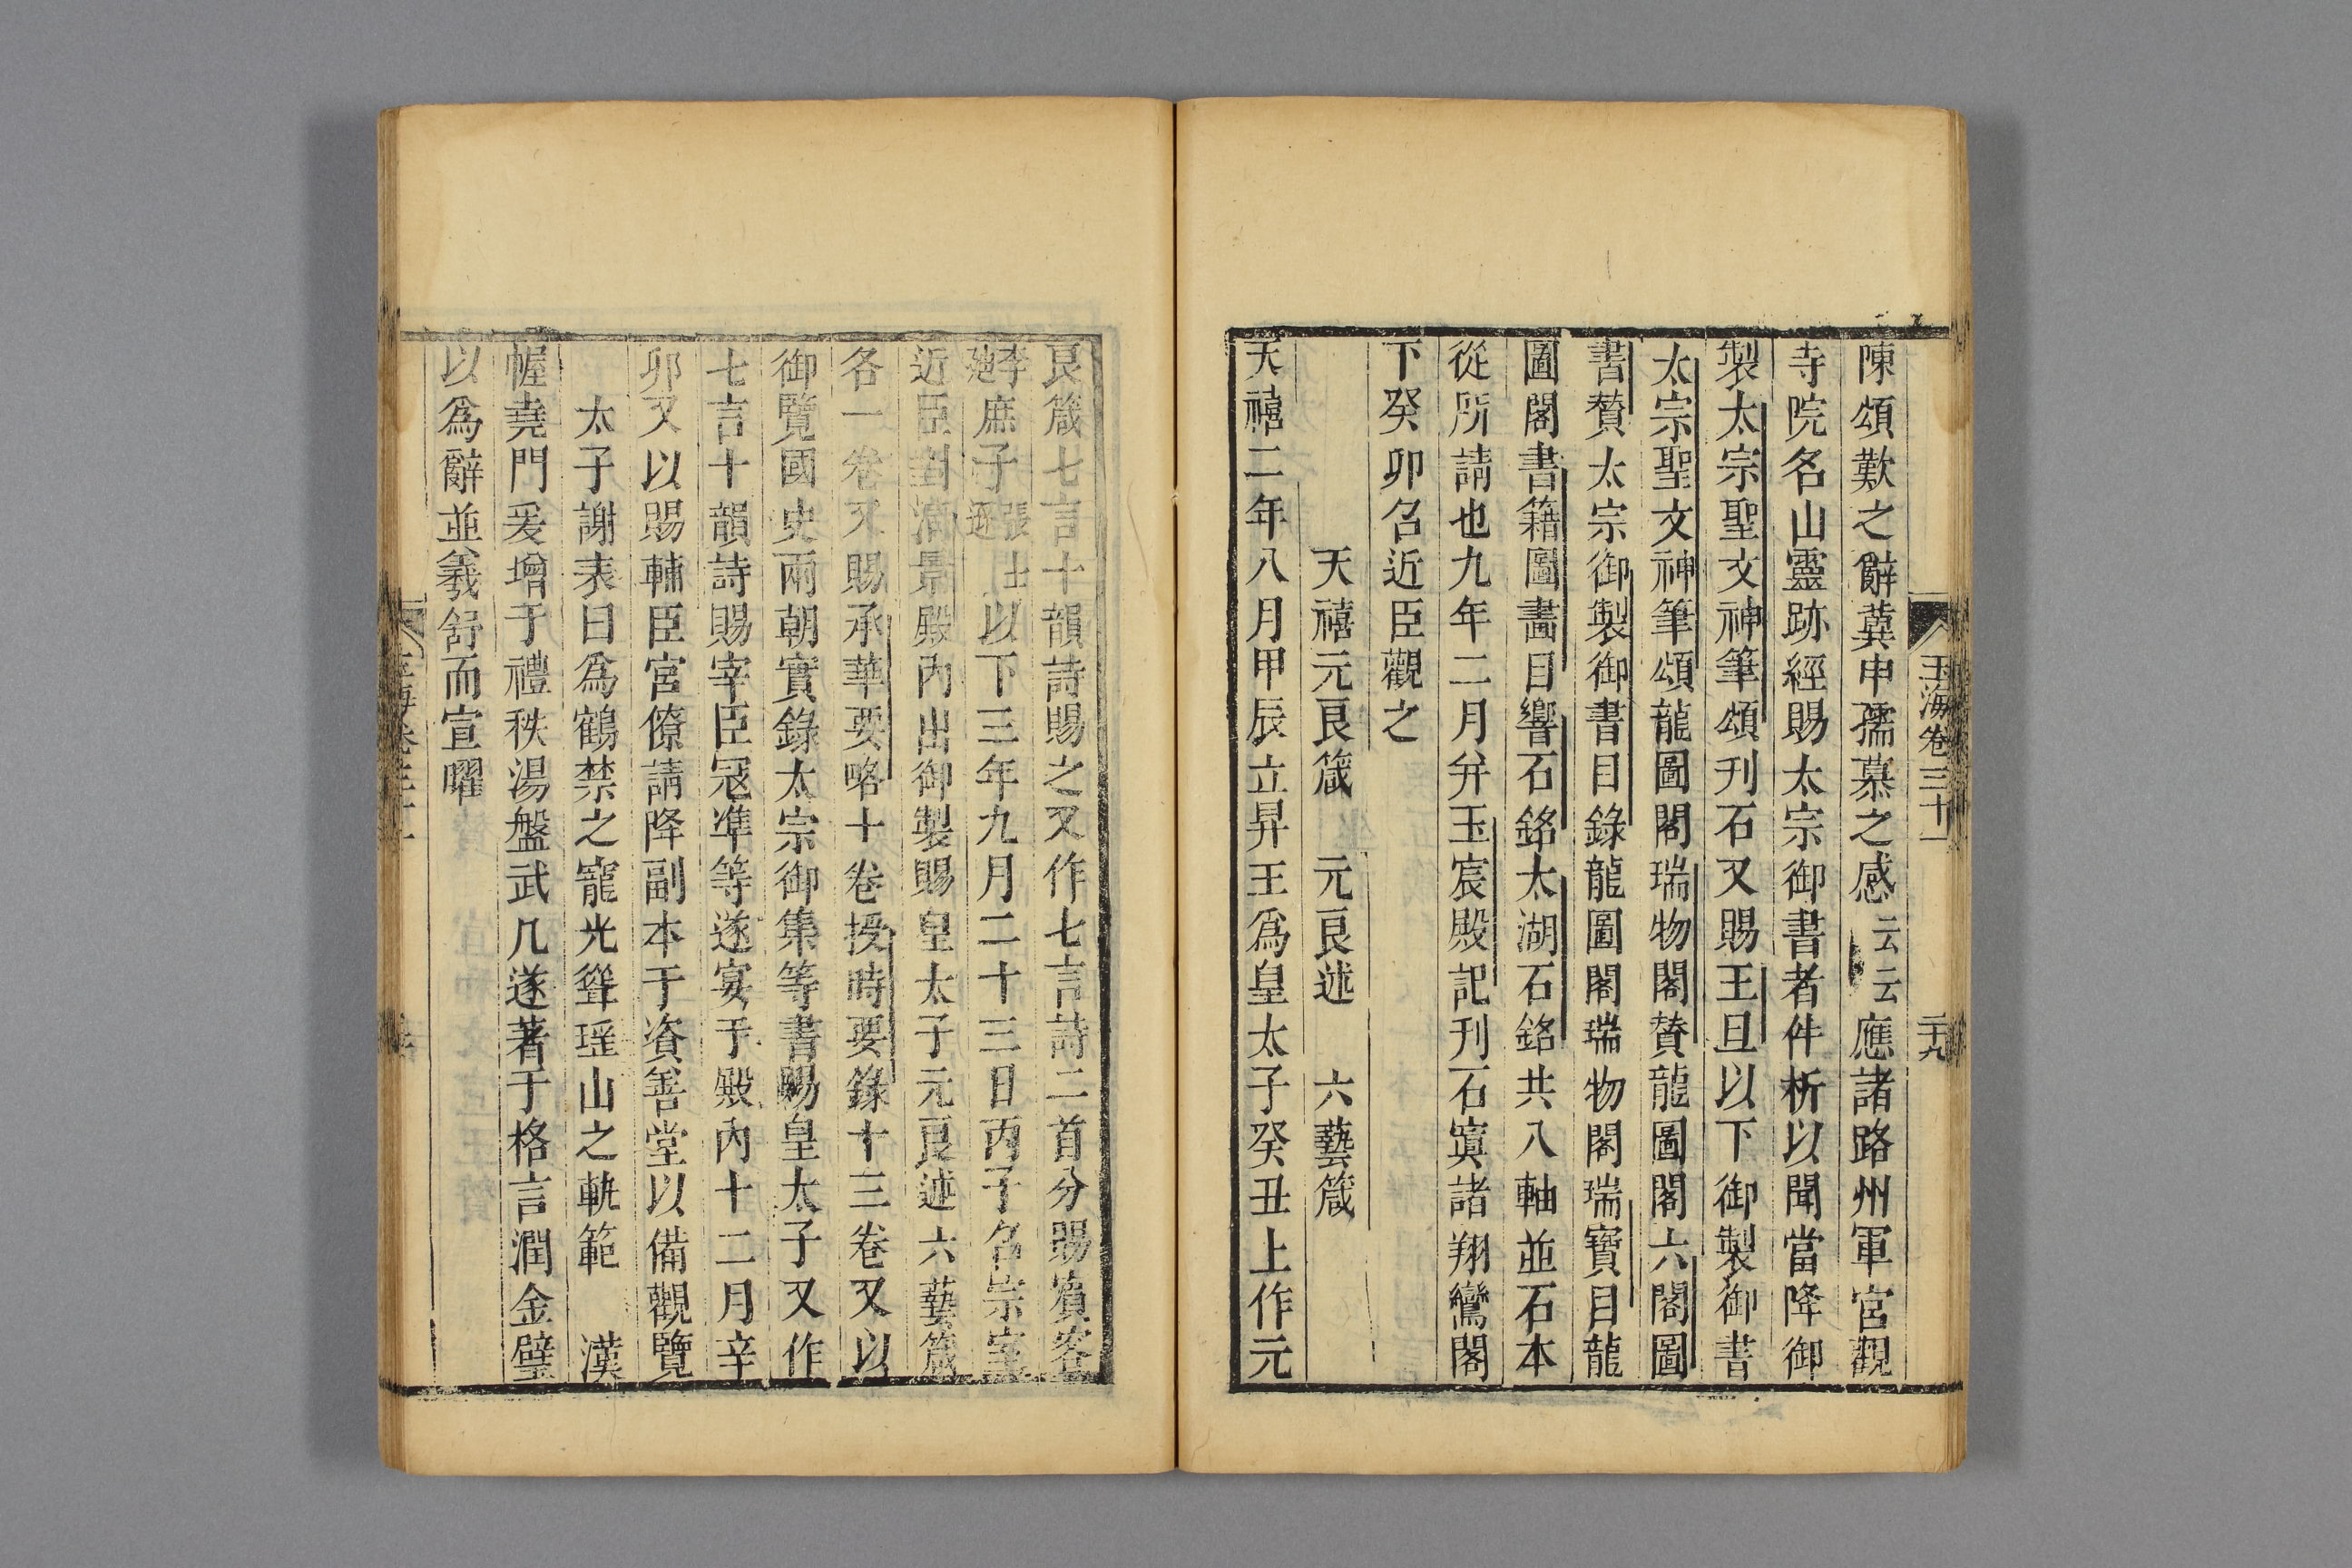 玉海卷三十一
二十九
陳頌歎之辭冀申孺慕之感云云應諸路州軍宮觀
寺院名山靈跡經賜太宗御書者件析以聞當降御
製太宗聖文神筆頌刋石又賜王旦以下御製御書
太宗聖文神筆頌龍圖閣瑞物閣贊龍圖閣六閣圖
書贊太宗御製御書目錄龍圖閣瑞物閣瑞寶目龍
圖閣書籍圖畫目響石銘太湖石銘共八軸並石本
從所請也九年二月并玉宸殿記刋石寘諸翔鸞閣
下癸卯召近臣觀之
天禧元良箴　元良述　六藝箴
天禧二年八月甲辰立昇王爲皇太子癸丑上作元
良箴七言十韻詩賜之又作七言詩二首分賜賓客
李庶子張以下三年九月二十三日丙子召宗室
近臣對滴景殿內出御製賜皇太子元良述六藝箴
各一卷又賜承華要略十卷授時要錄十三卷又以
御覽國史兩朝實錄太宗御集等書賜皇太子又作
七言十韻詩賜宰臣冦準等遂宴于殿內十二月辛
卯又以賜輔臣宮僚請降副本于資善堂以備觀覽
太子謝表曰爲鶴禁之寵光聳瑶山之軌範　漢
幄堯門爰增于禮秩湯盤武几遂著于格言潤金璧
以爲辭並羲舒而宣曜